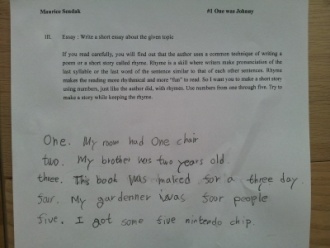 Maurice Sendak #1 One was Johnny
III. Essay : Write a short essay about the given topic
If you read carefully, you will find out that the author uses a common technique of writing a
poem or a short story called rhyme. Rhyme is a skill where writers make pronunciation of the
last syllable or the last word of the sentence similar to that of each other sentences. Rhyme
makes the reading more rhythmical and more "fun" to read. So I want you to make a short story
using numbers, just like the author did, with rhymes. Use numbers from one through five. Try to
make a story while keeping the rhyme.
One. My mom had One chair
two. My brother was two years old.
three. This book was maked for a three day
four. My gardenner was four people
five. I got some five nintendo chip.